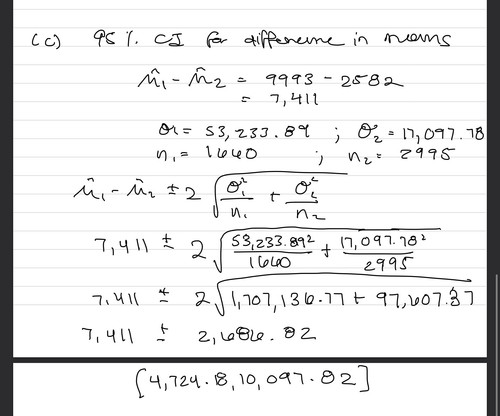 (c) 95% CI for difference in means
μ̂₁ - μ̂₂ = 9993 - 2582
= 7,411
σ₁ = 53,233.89 ; σ₂ = 17,097.78
n₁ = 1660 ; n₂ = 2995
μ̂₁ - μ̂₂ ± 2 √(σ₁²/n₁ + σ₂²/n₂)
7,411 ± 2 √(53,233.89²/1660 + 17,097.78²/2995)
7,411 ± 2 √(1,707,136.77 + 97,607.37)
7,411 ± 2,686.82
[4,724.18, 10,097.82]